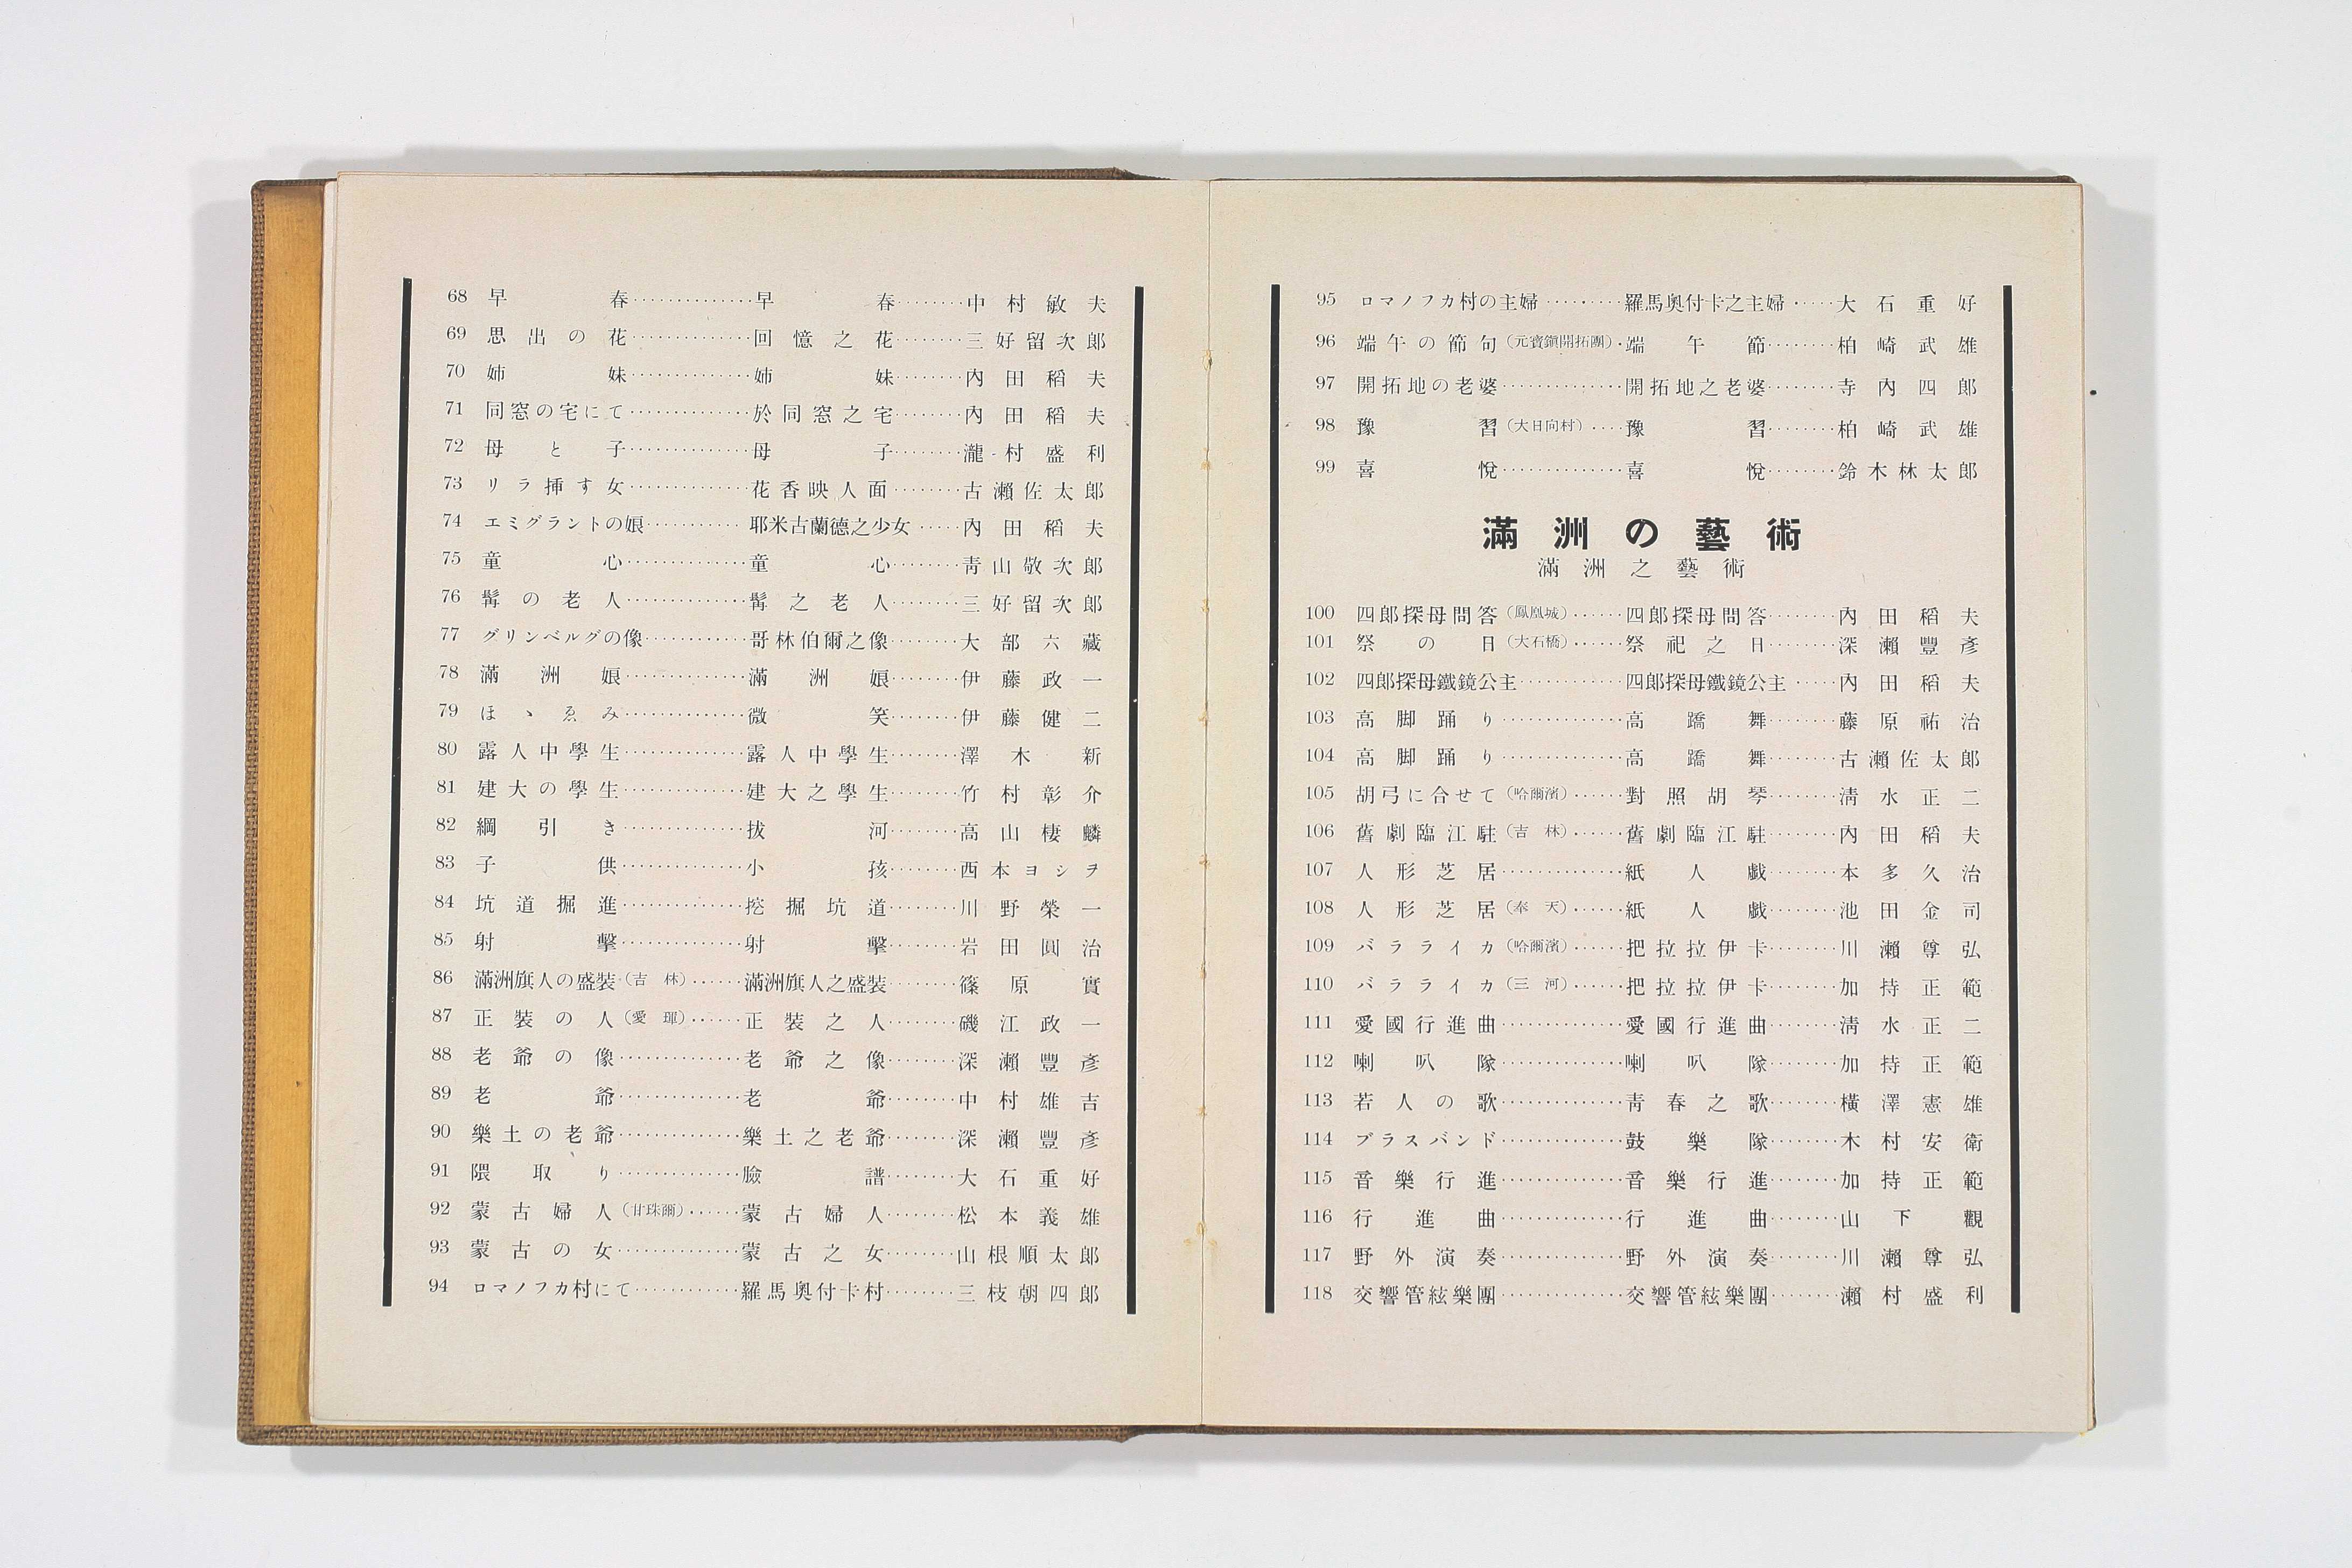 68 早春……………早春………中村敏夫
69 思出の花……………回憶之花………三好留次郎
70 姉妹……………姉妹………內田稻夫
71 同窓の宅にて……………於同窓之宅………內田稻夫
72 母と子……………母子………瀧村盛利
73 リラ挿す女……………花香映人面………古瀨佐太郎
74 エミグラントの娘…………耶米古蘭德之少女……內田稻夫
75 童心……………童心………靑山敬次郎
76 髯の老人……………髯之老人………三好留次郎
77 グリンベルグの像…………哥林伯爾之像………大部六藏
78 滿洲娘……………滿洲娘………伊藤政一
79 ほゝゑみ……………微笑………伊藤健二
80 露人中學生……………露人中學生………澤木新
81 建大の學生……………建大之學生………竹村彰介
82 綱引き……………拔河………高山棲麟
83 子供……………小孩………西本ヨシヲ
84 坑道掘進……………挖掘坑道………川野榮一
85 射擊……………射擊………岩田圓治
86 滿洲旗人の盛裝(吉林)……滿洲旗人之盛裝………篠原實
87 正裝の人(愛琿)……正裝之人………磯江政一
88 老爺の像……………老爺之像………深瀨豐彥
89 老爺……………老爺………中村雄吉
90 樂土の老爺……………樂土之老爺………深瀨豐彥
91 隈取り……………臉譜………大石重好
92 蒙古婦人(甘珠爾)……蒙古婦人………松本義雄
93 蒙古の女……………蒙古之女………山根順太郎
94 ロマノフカ村にて…………羅馬奧付卡村………三枝朝四郎
95 ロマノフカ村の主婦………羅馬奧付卡之主婦……大石重好
96 端午の節句(元寶鎭開拓團)・端午節………柏崎武雄
97 開拓地の老婆……………開拓地之老婆………寺內四郎
98 豫習(大日向村)……豫習………柏崎武雄
99 喜悅……………喜悅………鈴木林太郎
滿洲の藝術
滿洲之藝術
100 四郎探母問答(鳳凰城)……四郎探母問答………內田稻夫
101 祭の日(大石橋)……祭祀之日………深瀨豐彥
102 四郎探母鐵鏡公主…………四郎探母鐵鏡公主……內田稻夫
103 高脚踊り……………高蹻舞………藤原祐治
104 高脚踊り……………高蹻舞………古瀨佐太郎
105 胡弓に合せて(哈爾濱)……對照胡琴………淸水正二
106 舊劇臨江驛(吉林)……舊劇臨江驛………內田稻夫
107 人形芝居……………紙人戲………本多久治
108 人形芝居(奉天)……紙人戲………池田金司
109 バラライカ(哈爾濱)……把拉拉伊卡………川瀨尊弘
110 バラライカ(三河)……把拉拉伊卡………加持正範
111 愛國行進曲……………愛國行進曲………淸水正二
112 喇叭隊……………喇叭隊………加持正範
113 若人の歌……………靑春之歌………橫澤憲雄
114 ブラスバンド……………鼓樂隊………木村安衛
115 音樂行進……………音樂行進………加持正範
116 行進曲……………行進曲………山下觀
117 野外演奏……………野外演奏………川瀨尊弘
118 交響管絃樂團……………交響管絃樂團………瀨村盛利